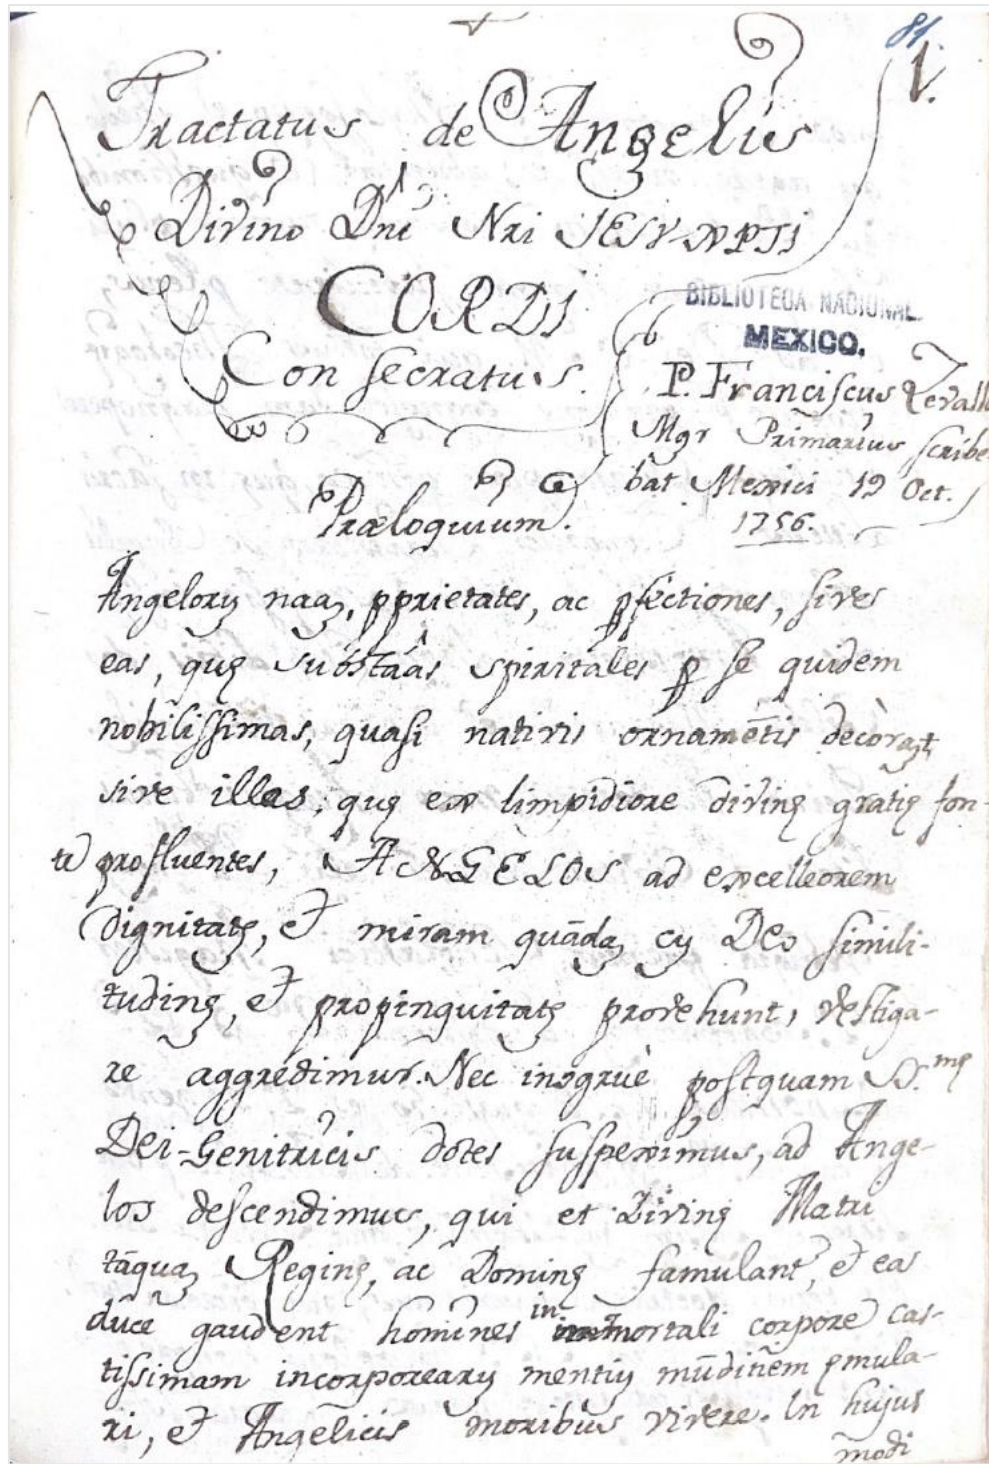 81.
1.
Tractatus de Angelis
Divino Dni Nri JESV XPTI
CORDI
Consecratus.
BIBLIOTECA NACIONAL
MEXICO.
P. Franciscus Zevall
Mgr Primarius scribe
bat Mexici 19 Oct.
1756.
Præloquium.
Angeloru naa, pprietates, ac pfectiones, sive
eas, quę substaas spiritales p se quidem
nobilissimas, quasi nativis ornamētis decorat,
sive illas, quę ex limpidiore divinę gratię fon-
te profluentes, ANGELOS ad excelleorem
Dignitatē, et miram quādā cu Deo simili-
tudinē, et propinquitatē provehunt, vestiga-
re aggredimur. Nec inogruè postquam SS.mę
Dei-Genitricis dotes suspeximus, ad Ange-
los descendimus, qui et Divinę Matri
tāqua Reginę, ac Dominę famulant, et ea
duce gaudent homines in mortali corpore cas-
tissimam incorporearu mentiu mūditiem ęmula-
ri, et Angelicis moribus vivere. In hujus
modi